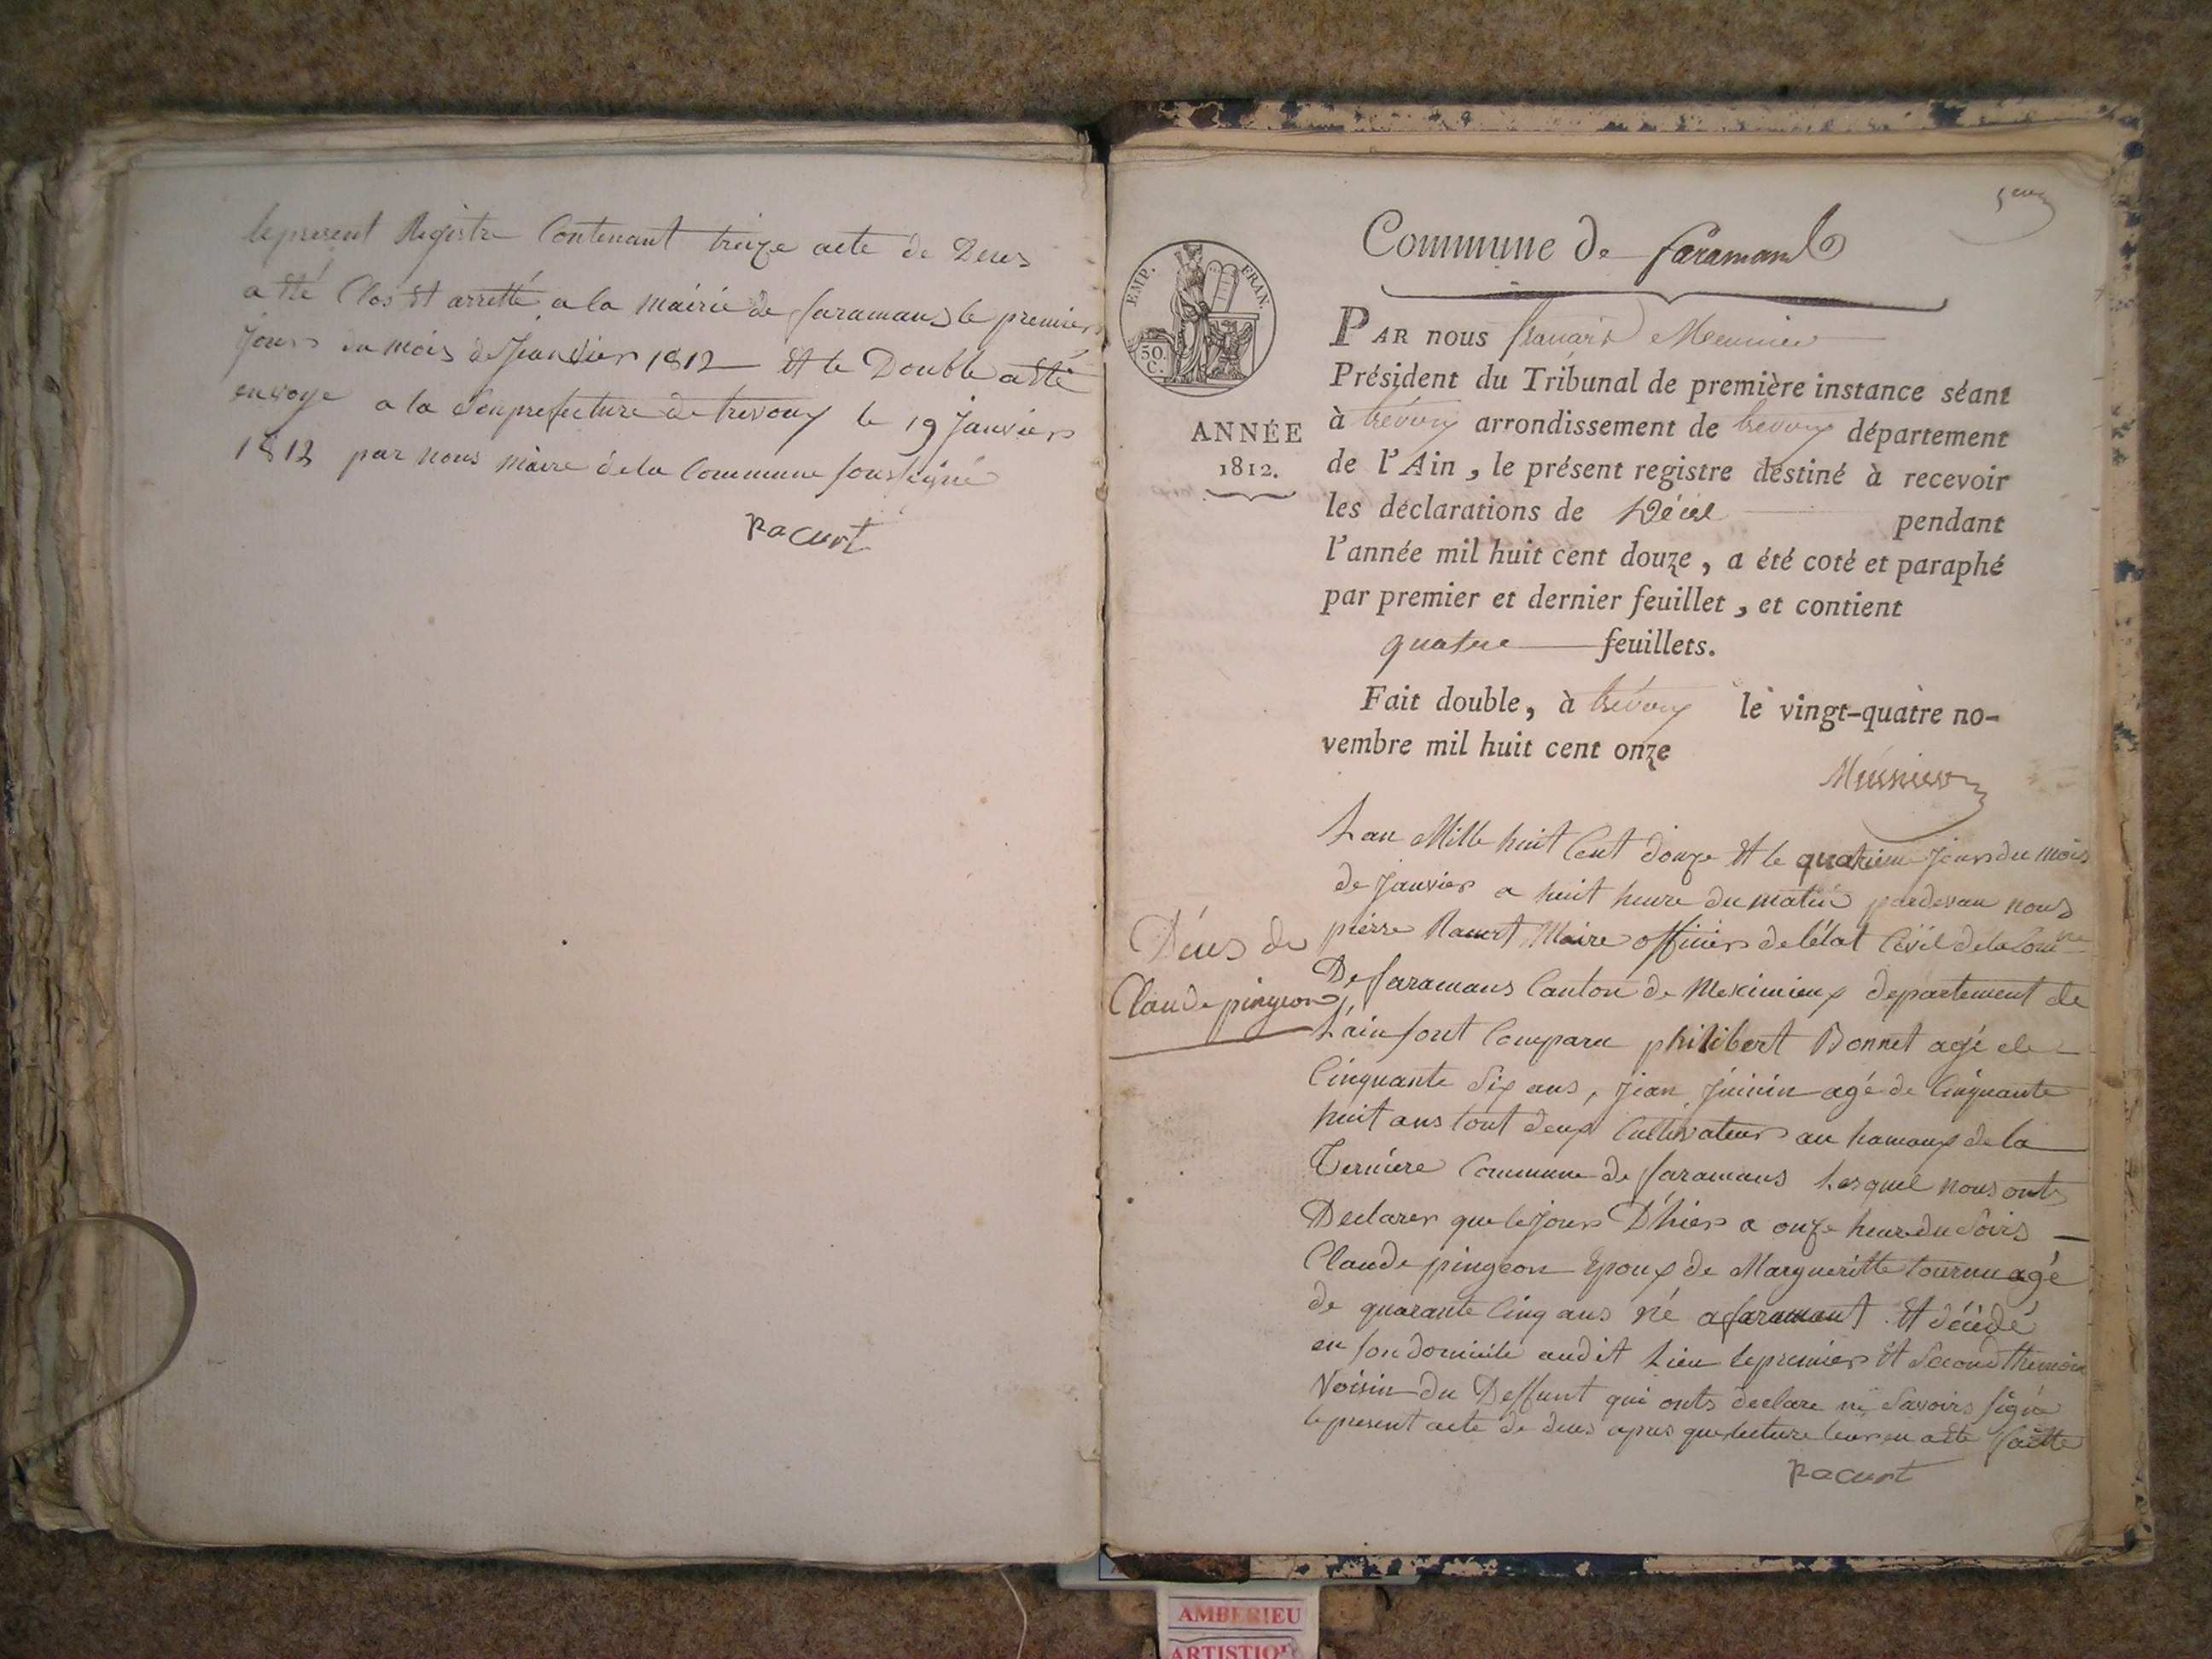 lepresent Registre Contenant treize acte de Deces
a été Clos Et arretté a la mairie de faramans le premier
jours du mois de Jeanvier 1812 Et le Double a Eté
envoye a la Souprefecture de trevoux le 19 Janvier
1812 par nous maire de la Commune soussigné
Racurt
Commune de faramans
EMP. FRAN.
50.
C.
ANNÉE
1812.
PAR nous françois Meunier
Président du Tribunal de première instance séant
à trévoux arrondissement de trévoux département
de l'Ain, le présent registre destiné à recevoir
les déclarations de Décès pendant
l'année mil huit cent douze, a été coté et paraphé
par premier et dernier feuillet, et contient
quatre feuillets.
Fait double, à trévoux le vingt-quatre no-
vembre mil huit cent onze
Meunier
Déces de
Claude pingeon
Lan Mille huit Cent douze Et le quatrieme jours du mois
de Janvier a huit heure du matin pardevan nous
pierre Racurt Maire officier de l'état Civil de la Comne
De faramans Canton de Meximieux departement de
L'ain sont Comparu philibert Bonnet agé de
Cinquante Six ans, Jean Juinin agé de Cinquante
huit ans tout deux Cultivateurs au hameaux de la
Terniere Commune de faramans Lesquel nous onts
Declarer que le jours D'hiers a onze heure du Soirs
Claude pingeon Epoux de Margueritte tournu agé
de quarante Cinq ans né a faramant Et décédé
en son domicile audit Lieu le premier Et Second themoin
Voisin du Deffunt qui onts declare ne Savoirs signé
le present acte de deces apres que lecture leur en a ete faitte
Racurt
AMBERIEU
ARTISTIQ